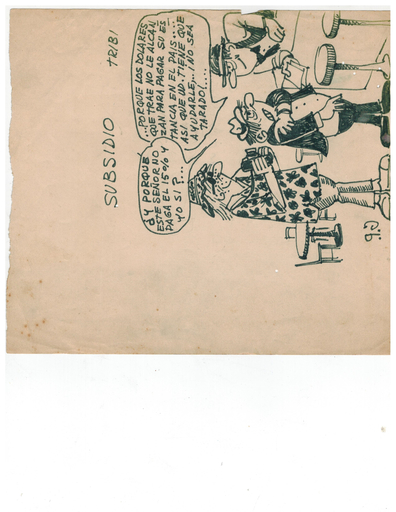 SUBSIDIO
TRIBI
¿Y PORQUE
ESTE SEÑOR NO
PAGA EL 15% Y
YO SI?...
...PORQUE LOS DOLARES
QUE TRAE NO LE ALCAN
ZAN PARA PAGAR SU ES
TANCIA EN EL PAIS...
ASI QUE UD. TIENE QUE
AYUDARLE,... ¡NO SEA
TARADO!....